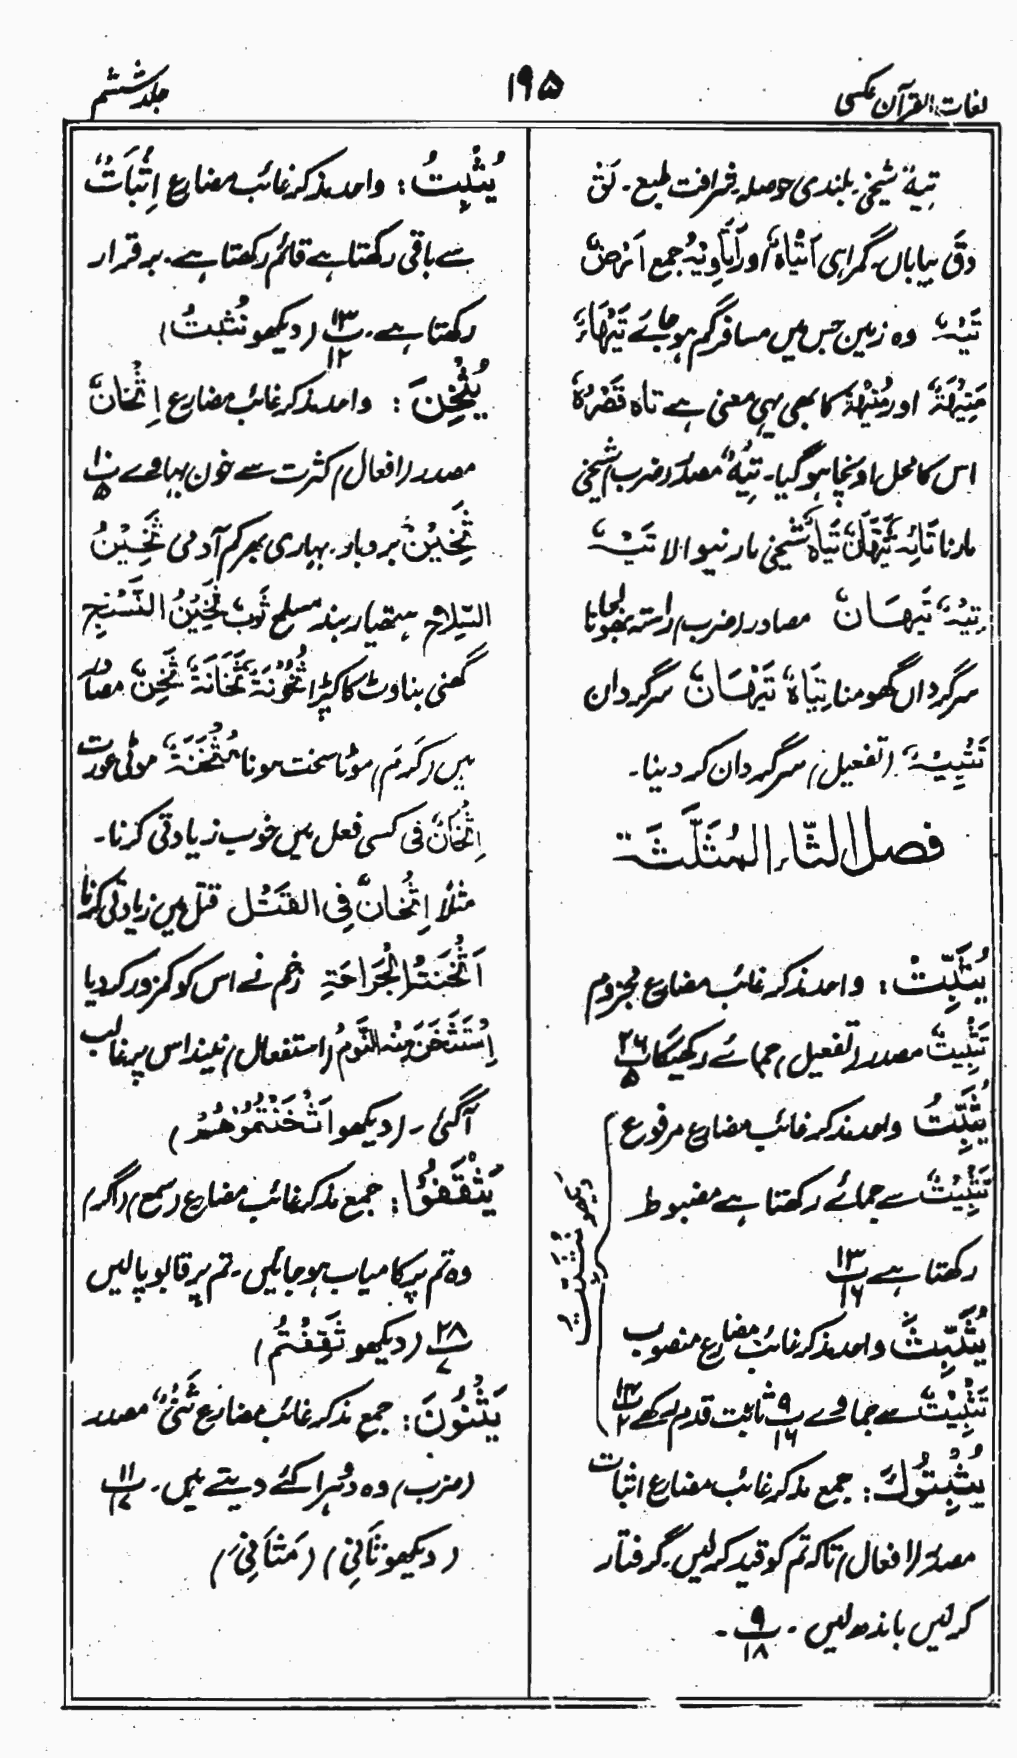 لغات القرآن عکسی
۱۹۵
جلد ششم
تِیْہٌ شیخی۔ بلندی حوصلہ۔ ظرافت طبع۔ لق
دق بیاباں۔ گمراہی اَتْیَاہٌ اور اَتَاوِیْہُ جمع اَرْضٌ
تَیْہٌ وہ زمین جس میں مسافر گم ہو جائے تَیْهَاءُ
مَتِیْهَةٌ اور مُتِیْهَةٌ کا بھی یہی معنی ہے تَاہَ قَصْرُہٗ
اس کا محل اونچا ہو گیا۔ تِیْہٌ مصدر (ضرب) شیخی
مارنا تَائِہٌ تَیْهَانٌ تَیَّاہٌ شیخی مارنیوالا تَیْہٌ
تِیْہٌ تَیَهَانٌ مصادر (ضرب) راستہ بھولنا
سرگرداں گھومنا تَیَّاہٌ تَیْهَانٌ سرگردان
تَتْیِیْہٌ (تفعیل) سرگردان کر دینا۔
فصل الثاء المثلثة
یُثَبِّتْ: واحد مذکر غائب مضارع مجزوم
تَثْبِیْتٌ مصدر (تفعیل) جمائے رکھیگا ۲۶ پ ۵
یُثَبِّتُ واحد مذکر غائب مضارع مرفوع
تَثْبِیْتٌ سے جمائے رکھتا ہے مضبوط
رکھتا ہے ۱۳ پ ۱۶
یُثَبِّتَ واحد مذکر غائب مضارع منصوب
تَثْبِیْتٌ سے جماوے ۹ پ ۱۶ ثابت قدم رکھے ۱۴ پ ۲
دیکھو نُثَبِّتُ
یُثْبِتُوْكَ: جمع مذکر غائب مضارع اثبات
مصدر (افعال) تاکہ تم کو قید کر لیں۔ گرفتار
کر لیں باندھ لیں۔ ۹ پ ۱۸۔
یُثْبِتُ: واحد مذکر غائب مضارع اِثْبَاتٌ
سے باقی رکھتا ہے قائم رکھتا ہے۔ برقرار
رکھتا ہے۔ ۱۳ پ ۱۲ (دیکھو نُثَبِّتُ)
یُثْخِنَ: واحد مذکر غائب مضارع اِثْخَانٌ
مصدر (افعال) کثرت سے خون بہاوے ۱۰ پ ۵
ثَخِیْنٌ بردبار۔ بہاری بھرکم آدمی ثَخِیْنُ
السِّلَاحِ ہتھیار بند مسلح ثَوْبٌ ثَخِیْنُ النَّسْجِ
گھنی بناوٹ کا کپڑا ثُخُوْنَةٌ ثَخَانَةٌ ثَخِنٌ مصادر
ہیں (کَرُمَ) موٹا سخت ہونا مُثْخَنَةٌ موٹی عورت
اِثْخَانٌ فی کسی فعل میں خوب زیادتی کرنا۔
مثلاً اِثْخَانٌ فِی الْقَتْلِ قتل میں زیادتی کرنا
اَثْخَنَتْهُ الْجَرَاحَةُ زخم نے اس کو کمزور کر دیا
اِسْتَثْخَنَ مِنْہُ النَّوْمُ (استفعال) نیند اس پر غالب
آگئی۔ (دیکھو اَثْخَنْتُمُوْهُمْ)
یَثْقَفُوْا: جمع مذکر غائب مضارع (سمع) (اگر)
وہ تم پر کامیاب ہو جائیں۔ تم پر قابو پالیں
۲۸ پ ۷ (دیکھو ثَقِفْتُمْ)
یَثْنُوْنَ: جمع مذکر غائب مضارع ثَنْیٌ مصدر
(ضرب) وہ دُہرا کئے دیتے ہیں۔ ۱۱ پ ۱۷
(دیکھو ثَانِیَ) (مَثَانِیَ)